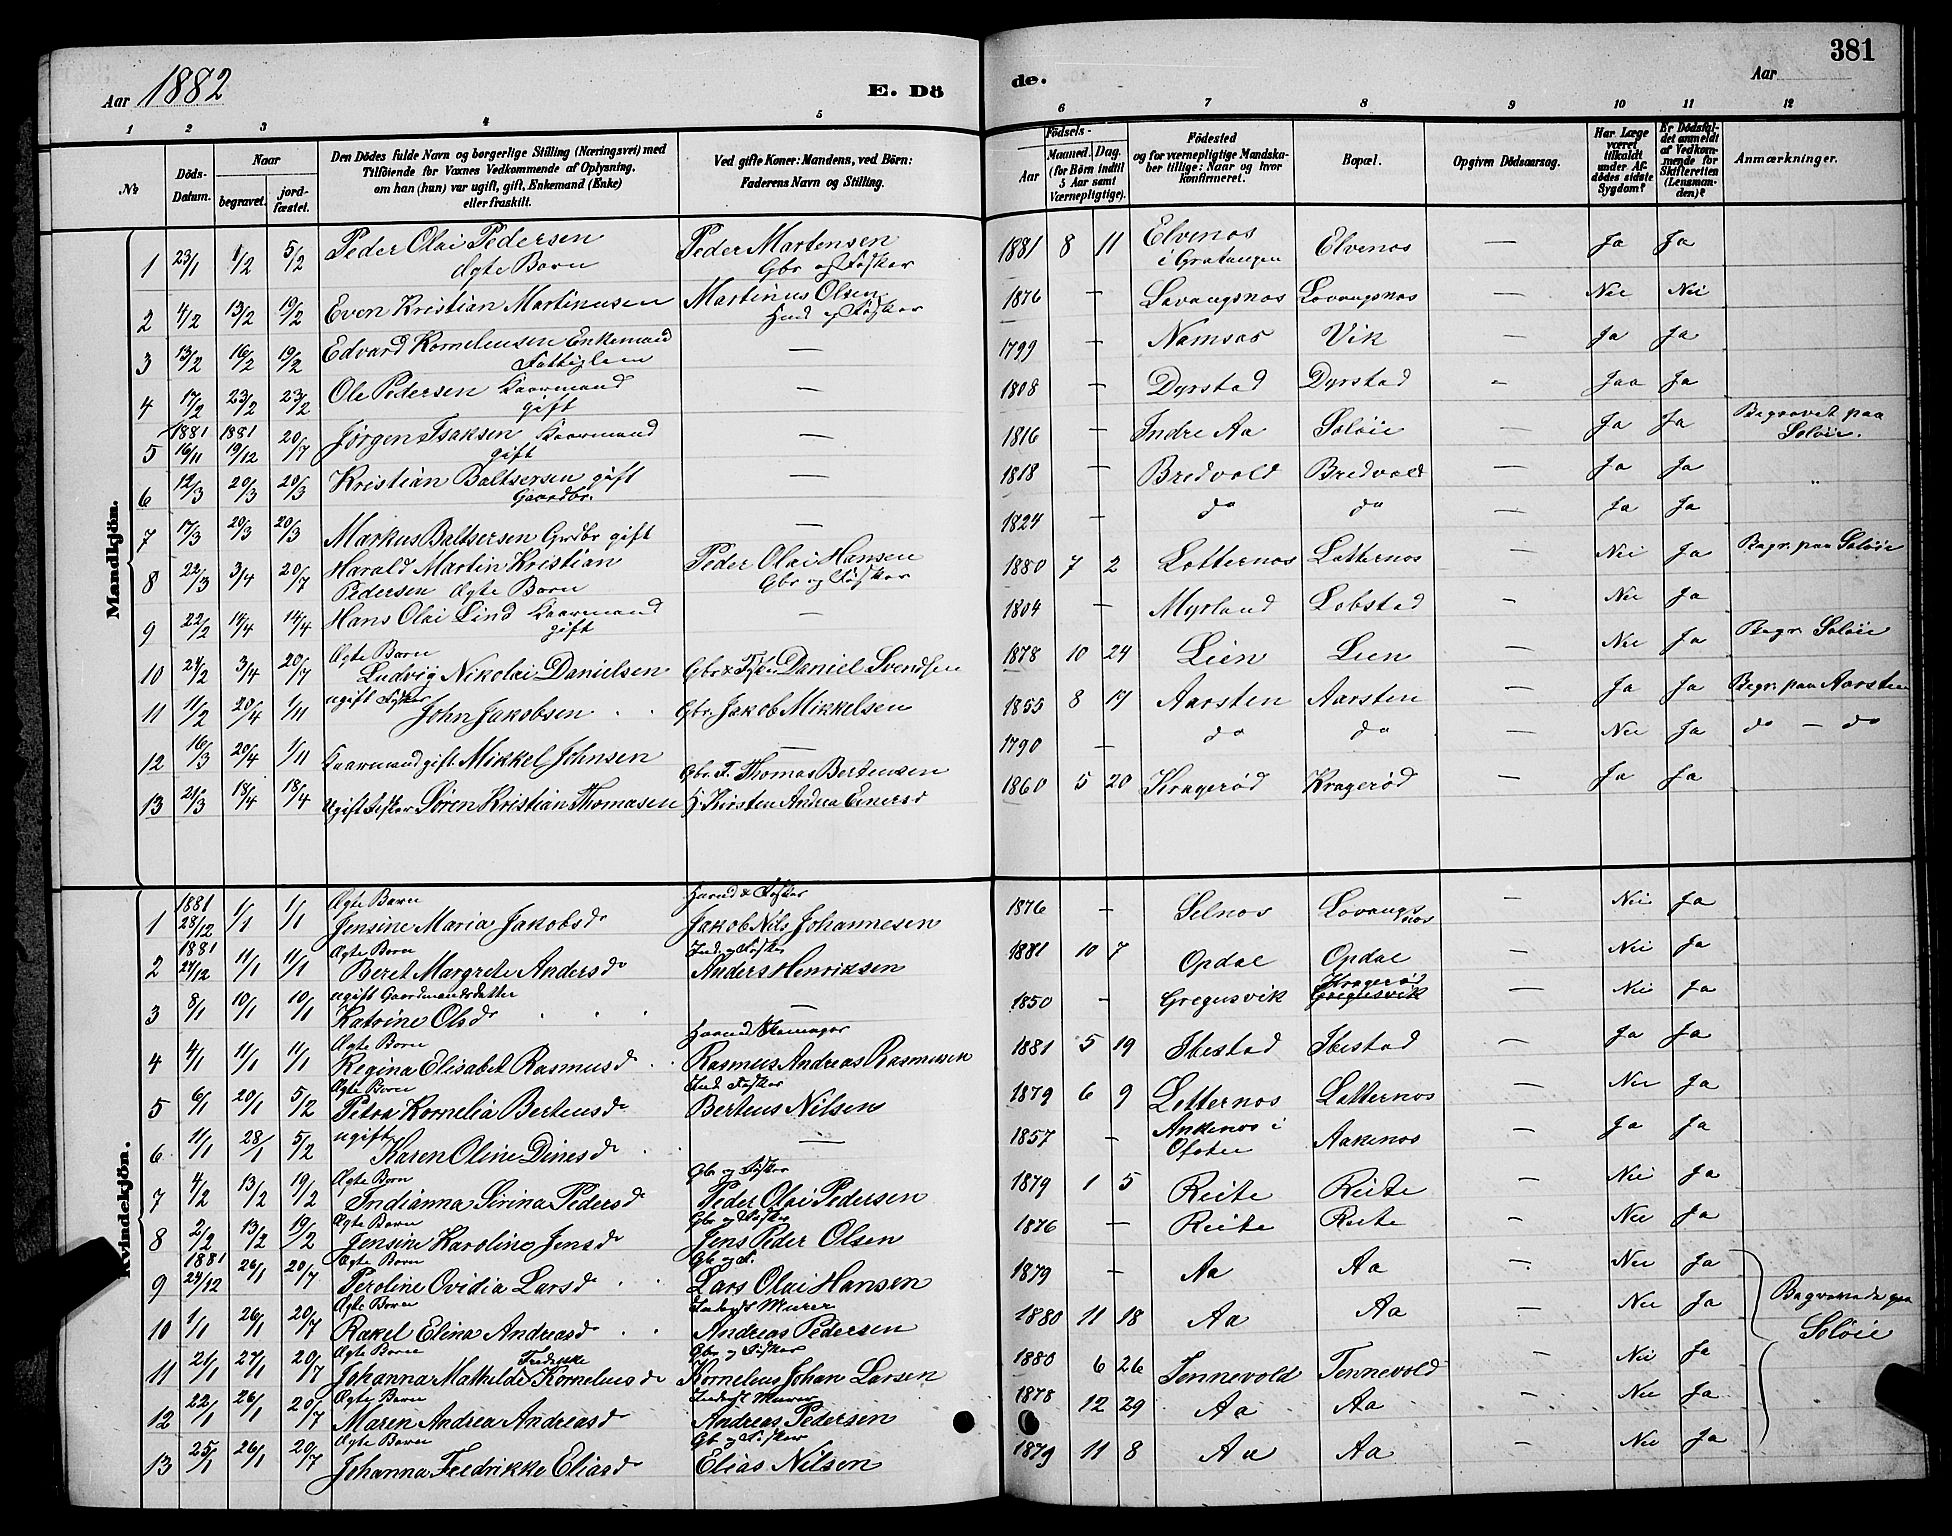 381
Aar 1882 E. Dö de. Aar
1 2 3 4 5 6 7 8 9 10 11 12
No Döds-Datum. Naar begravet. jordfæstet. Den Dödes fulde Navn og borgerlige Stilling (Næringsvei) med Tilföiende for Voxnes Vedkommende af Oplysning, om han (hun) var ugift, gift, Enkemand (Enke) eller fraskilt. Ved gifte Koner: Mandens, ved Börn: Faderens Navn og Stilling. Födsels- Aar Maaned. Dag. (for Börn indtil 5 Aar samt Værnepligtige). Födested og for værnepligtige Mandskaber tillige: Naar og hvor konfirmeret. Bopæl. Opgiven Dödsaarsag. Har Læge været tilkaldt under Afdödes sidste Sygdom? Er Dödsfaldet anmeldt af Vedkommende for Skifteretten (Lensmanden)? Anmærkninger.
Mandkjön.
1 23/1 1/2 5/2 Peder Olai Pedersen Ægte Barn Peder Martensen Gbr og Fisker 1881 8 11 Elvenos i Gratangen Elvenos — Ja Ja
2 4/2 13/2 19/2 Even Kristian Martinusen Martinus Olsen Hmd og Fisker 1876 — Lavangsnos Lovangsnos — Nei Nei
3 13/2 16/2 19/2 Edvard Kornelieusen Enkemand Fattiglem — 1799 — Namsos Vik — Ja Ja
4 17/2 23/2 23/2 Ole Pedersen Kaarmand gift — 1808 — Dyrstad Dyrstad — Jaa Ja
5 1881 16/11 1881 19/12 20/7 Jørgen Isaksen Kaarmand gift — 1816 — Indre Aa Soløie — Ja Ja Begravet paa Soløie.
6 12/3 20/3 20/3 Kristian Baltsersen gift Gaardbr. — 1818 — Bredvold Bredvold — Ja Ja "
7 17/3 20/3 20/3 Markus Baltsersen Grdbr gift — 1824 — do do — Ja Ja
8 22/3 3/4 20/7 Harald Martin Kristian Pedersen Ægte Barn Peder Olai Hansen Gbr og Fisker 1880 7 2 Lotternos Lotternos — Nei Ja Begr. paa Soløie
9 22/2 14/4 14/4 Hans Olai Lind Kaarmand gift — 1804 — Myrland Lobstad — Nei Ja
10 24/2 3/4 20/7 Ægte Barn Ludvig Nikolai Danielsen Gbr & Fisker Daniel Svendsen 1878 10 24 Lien Lien — Nei Ja Begr. Soløie
11 11/2 20/4 1/11 ugift Fisker John Jakobsen Gbr. Jakob Mikkelsen 1855 8 17 Aarsten Aarsten — Ja Ja Begr. paa Aarsten
12 16/3 20/4 1/11 Kaarmand gift Mikkel Johnsen — 1790 — do do — Nei Ja do — do
13 21/3 18/4 18/4 Ugift Fisker Søren Kristian Thomasen Gbr. F. Thomas Berteusen H. Kirsten Andrea Einersd 1860 5 20 Kragerød Kragerød — Ja Ja
Kvindekjön.
1 1881 28/12 1/1 1/1 Ægte Barn Jensine Maria Jakobsdr Husmd & Fisker Jakob Nils Johannesen 1876 — Selnos Lovangsnos — Nei Ja
2 1881 27/12 11/1 11/1 Ægte Barn Beret Margrete Andersdr Inds og Fisker Anders Henriksen 1881 10 7 Opdal Opdal — Nei Ja
3 8/1 10/1 10/1 ugift Gaardmandsdatter Katrine Olsdr — 1850 — Gregusvik Kragerød Gregusvik — Nei Ja
4 4/1 11/1 11/1 Ægte Barn Regina Elisabet Rasmusdr Rasmus Andreas Rasmusen 1881 5 19 Ibestad Ibestad — Ja Ja
5 6/1 20/1 5/2 Ægte Barn Petra Kornelia Berteusdr Ind Fisker Berteus Nilsen 1879 6 9 Lotternos Lotternos — Nei Ja
6 11/1 28/1 5/2 ugift Karen Oline Dinesdr — 1857 — Ankenos i Ofoten Aakenos — Ja Ja
7 4/2 13/2 19/2 Ægte Barn Indianna Sirina Pedersdr Gbr og Fisker Peder Olai Pedersen 1879 1 5 Reite Reite — Nei Ja
8 2/2 13/2 19/2 Ægte Barn Jensine Karoline Jensdr Gbr og Fisker Jens Peder Olsen 1876 — Reite Reite — Nei Ja
9 1881 24/12 26/1 20/7 Ægte Barn Peroline Ovidia Larsdr Gb og F. Lars Olai Hansen 1879 — Aa Aa — Nei Ja
10 1/1 26/1 20/7 Ægte Barn Rakel Elina Andreasdr Inderst Murer Andreas Pedersen 1880 11 18 Aa Aa — Nei Ja Begravede paa Soløie
11 21/1 27/1 20/7 Ægte Barn Johanna Mathilde Fredrikke Korneliusdr Gbr og Fisker Kornelius Johan Larsen 1880 6 26 Tennevold Tennevold — Nei Ja
12 22/1 26/1 20/7 Ægte Barn Maren Andrea Andreasdr Inderst Murer Andreas Pedersen 1878 12 29 Aa Aa — Nei Ja
13 25/1 26/1 20/7 Ægte Barn Johanna Fredrikke Eliasdr Gb og Fisker Elias Nilsen 1879 11 8 Aa Aa — Nei Ja